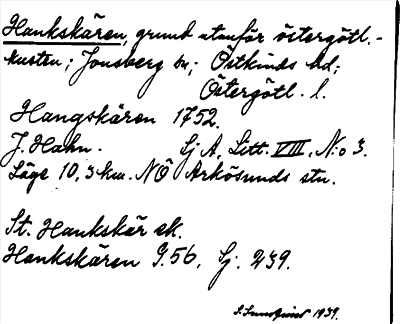 Hankskären, grund utanför östergötl.-
kusten; Jonsberg sn; Östkinds hd;
Östergötl. l.
Hangskären 1752.
J. Hahn. Sj A, Litt. VIII, N:o 3.
Läge 10,3 km. NÖ Arkösunds stn.
St. Hankskär ek.
Hankskären G.56, Sj. 239.
S. Lundqvist 1939.